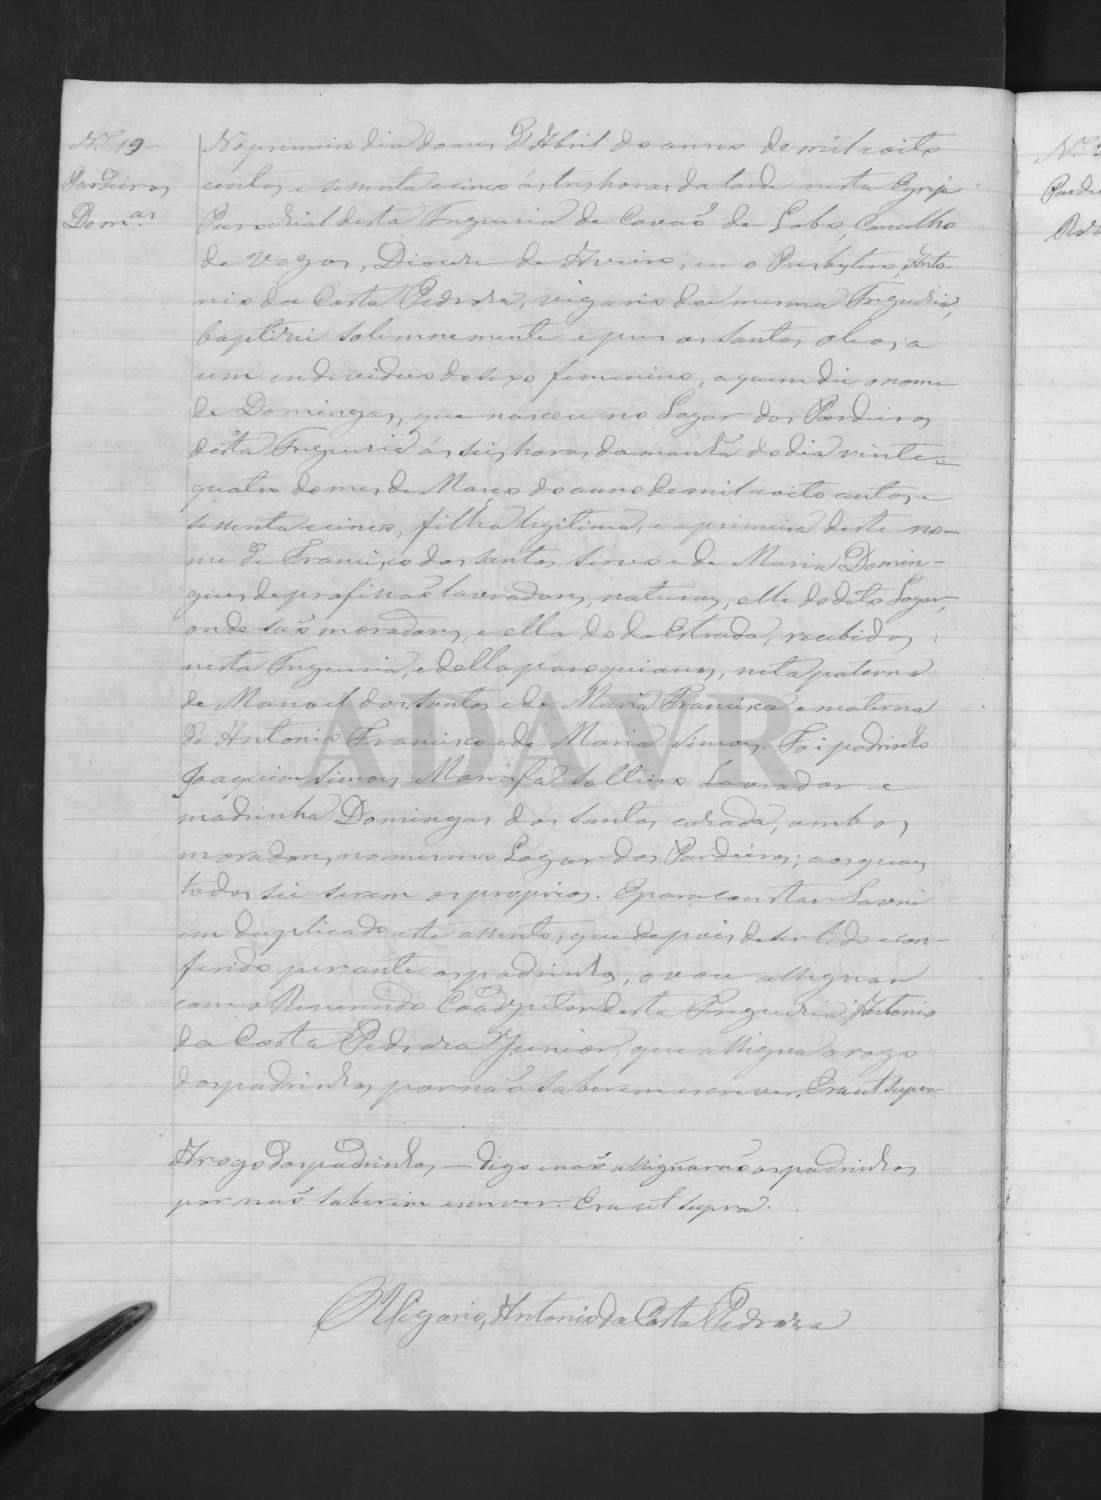 N.º 19
Pardieiros
Dom.as
No primeiro dia do mes d'Abril do anno de mil oito
centos e sessenta e cinco ás tres horas da tarde nesta Egreja
Parochial desta Freguesia de Covaõ do Lobo, Concelho
de Vagos, Diocese de Aveiro, eu o Presbytero, Anto-
nio da Costa Pedroza, vigario da mesma Freguesia,
baptizei solemnemente e pus os santos oleos a
um individuo do sexo femenino, a quem dei o nome
de Domingas, que nasceu no Lugar dos Pardieiros
desta Freguesia ás seis horas da manhã do dia vinte e
quatro do mes de Março do anno de mil e oito centos e
sessenta e cinco, filha legitima, e a primeira deste no-
me de Francisco dos Santos e de Maria Domin-
gues de profissaõ lavradores, naturaes, elle do dito Lugar,
onde saõ moradores, e ella do da Estrada, recebidos
nesta Freguesia, e della paroquianos, neta paterna
de Manoel dos Santos e de Maria Francisca e materna
de Antonio Francisco e de Maria Simoes. Foi padrinho
Joaquim Simoes solteiro Lavrador e
madrinha Domingas dos Santos, casada, ambos
moradores no mesmo Lugar dos Pardieiros; aos quaes
todos sei serem os proprios. E para constar Lavrei
em duplicado este assento, que depois de ser lido e con-
ferido perante os padrinhos, o vou assignar
com o Reverendo Coadjutor desta Freguesia, Antonio
da Costa Pedroza Junior, que assigna a rogo
dos padrinhos por naõ saberem escrever. Era ut supra
A rogo dos padrinhos — digo e naõ assignaraõ os padrinhos
por naõ saberem escrever. Era ut supra.
O Vigario, Antonio da Costa Pedroza
ADAVR
N.º